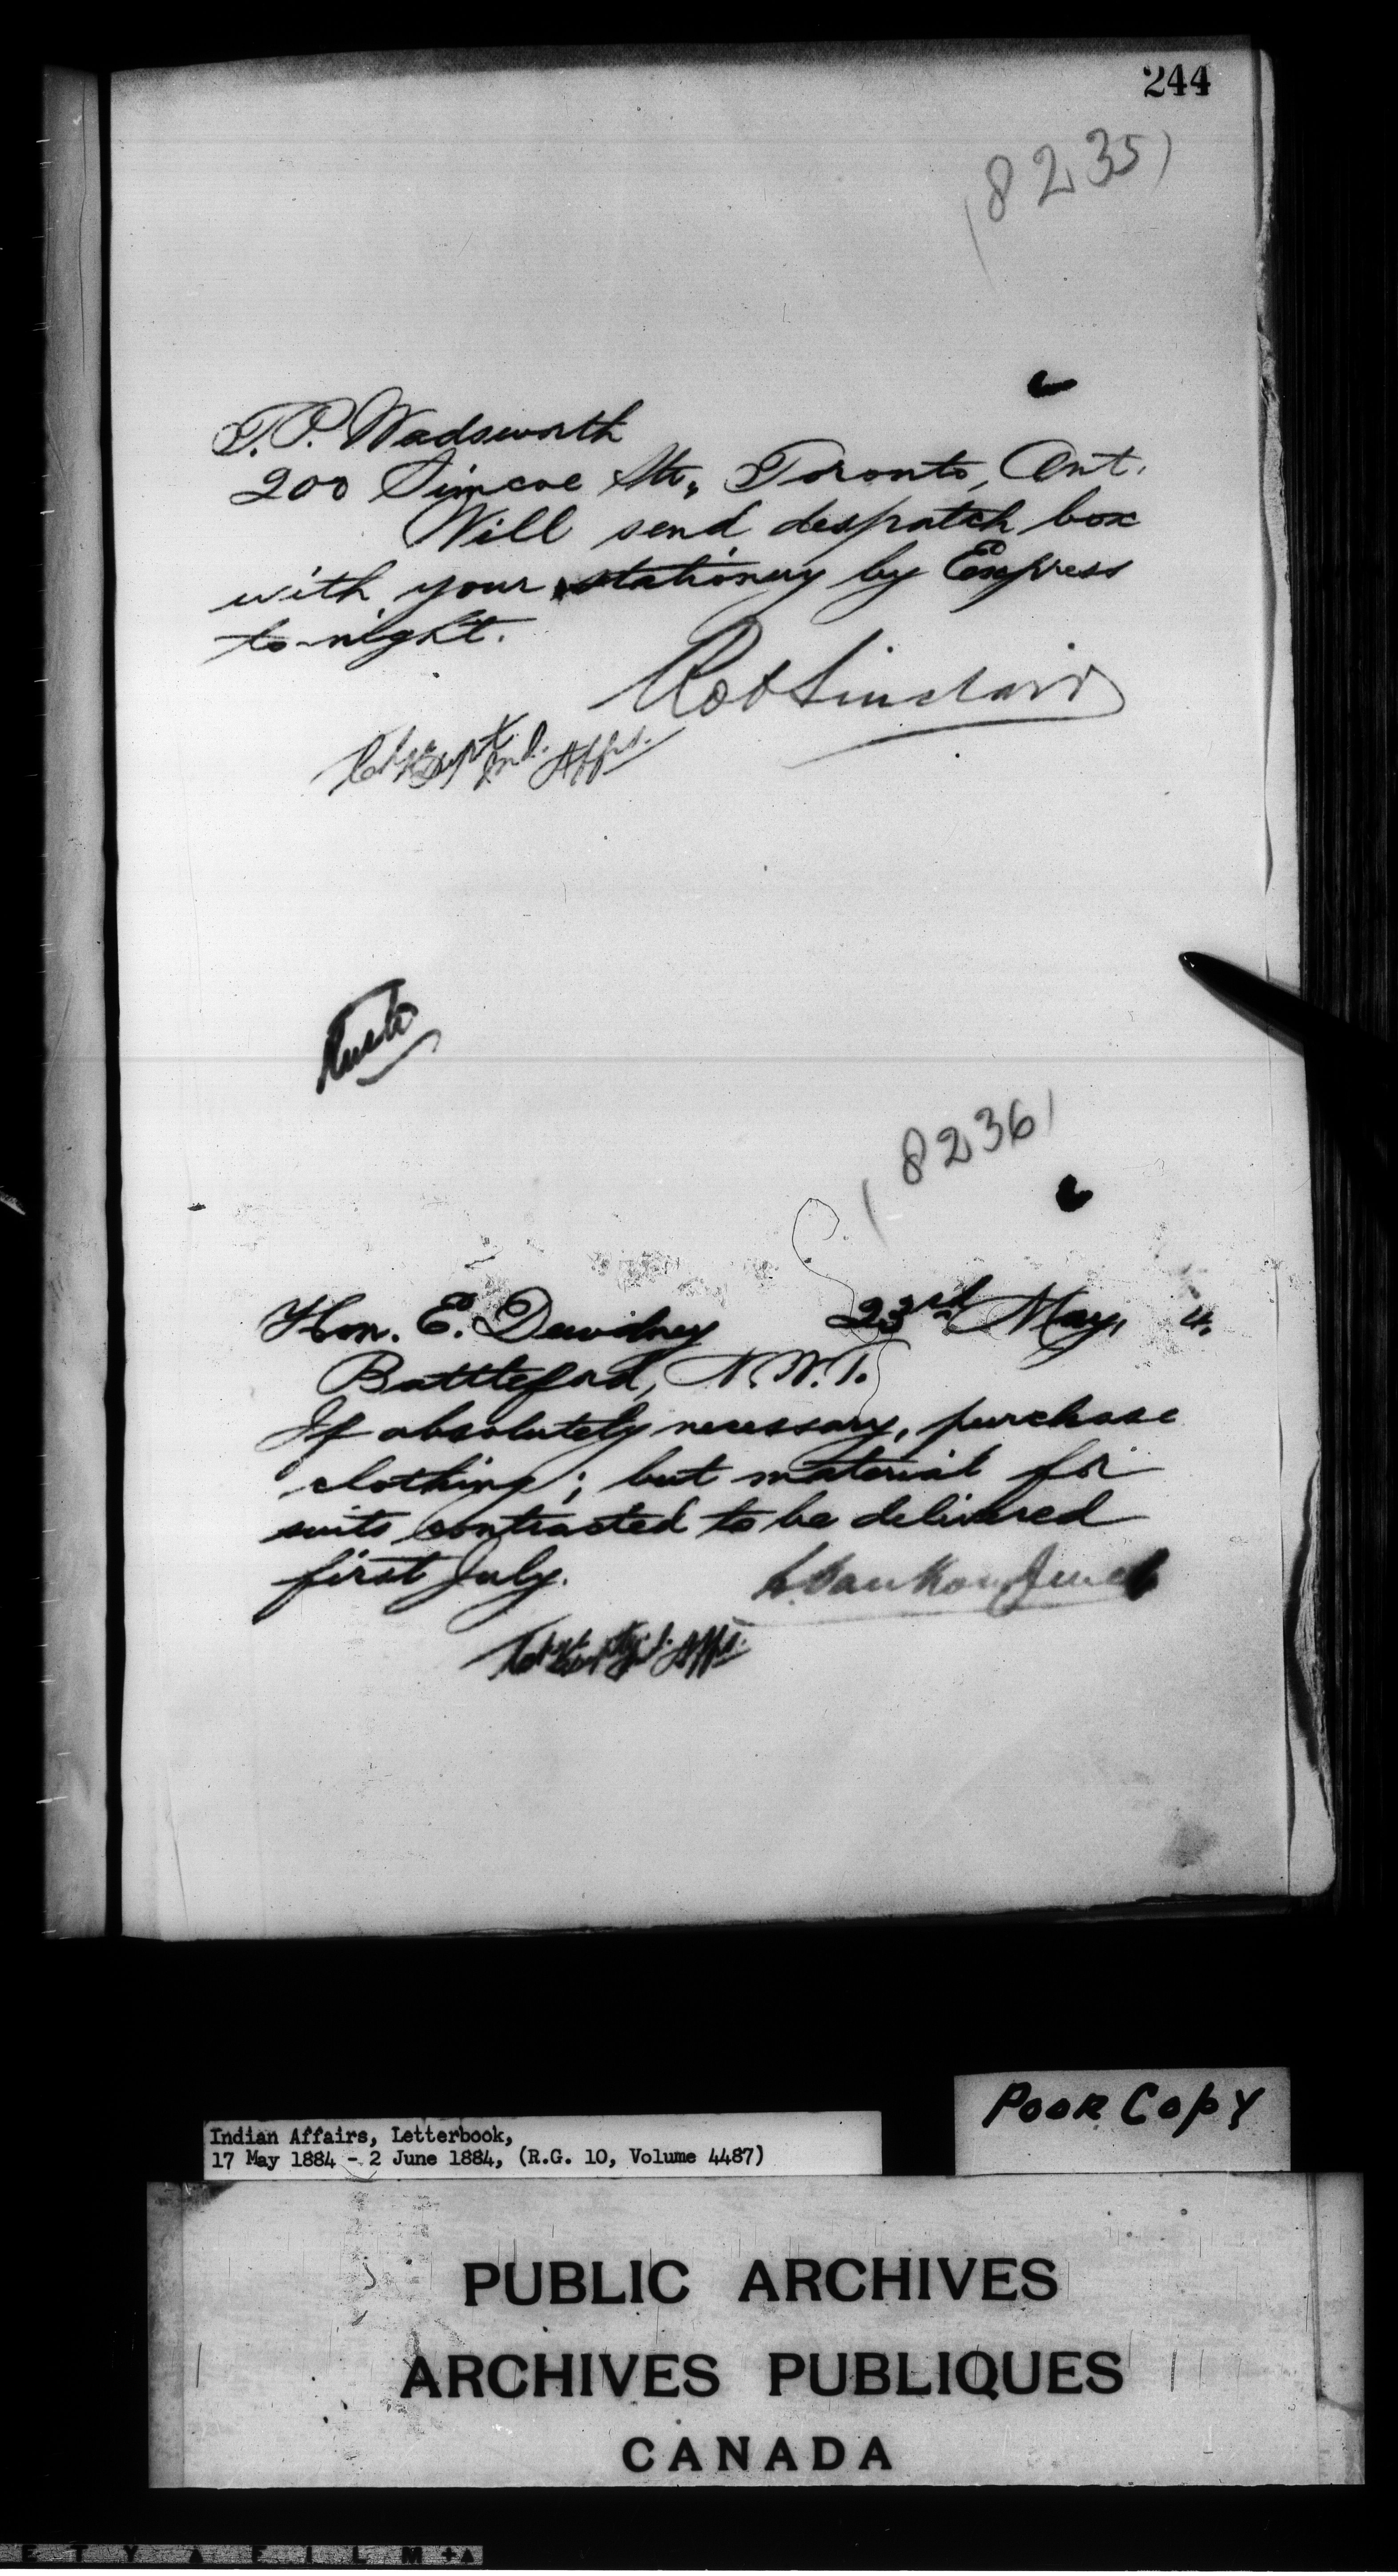 244
(8235)
T. P. Wadsworth
200 Simcoe Str., Toronto, Ont.
Will send despatch box
with your stationery by Express
to-night.
Rob Sinclair
Ind. Affrs.
(8236)
Hon. E. Dewdney 23rd May, 4.
Battleford, N.W.T.
If absolutely necessary, purchase
clothing; but material for
suits contracted to be delivered
first July.
L. Vankoughnet
Ind. Affrs.
POOR COPY
Indian Affairs, Letterbook,
17 May 1884 - 2 June 1884, (R.G. 10, Volume 4487)
PUBLIC ARCHIVES
ARCHIVES PUBLIQUES
CANADA